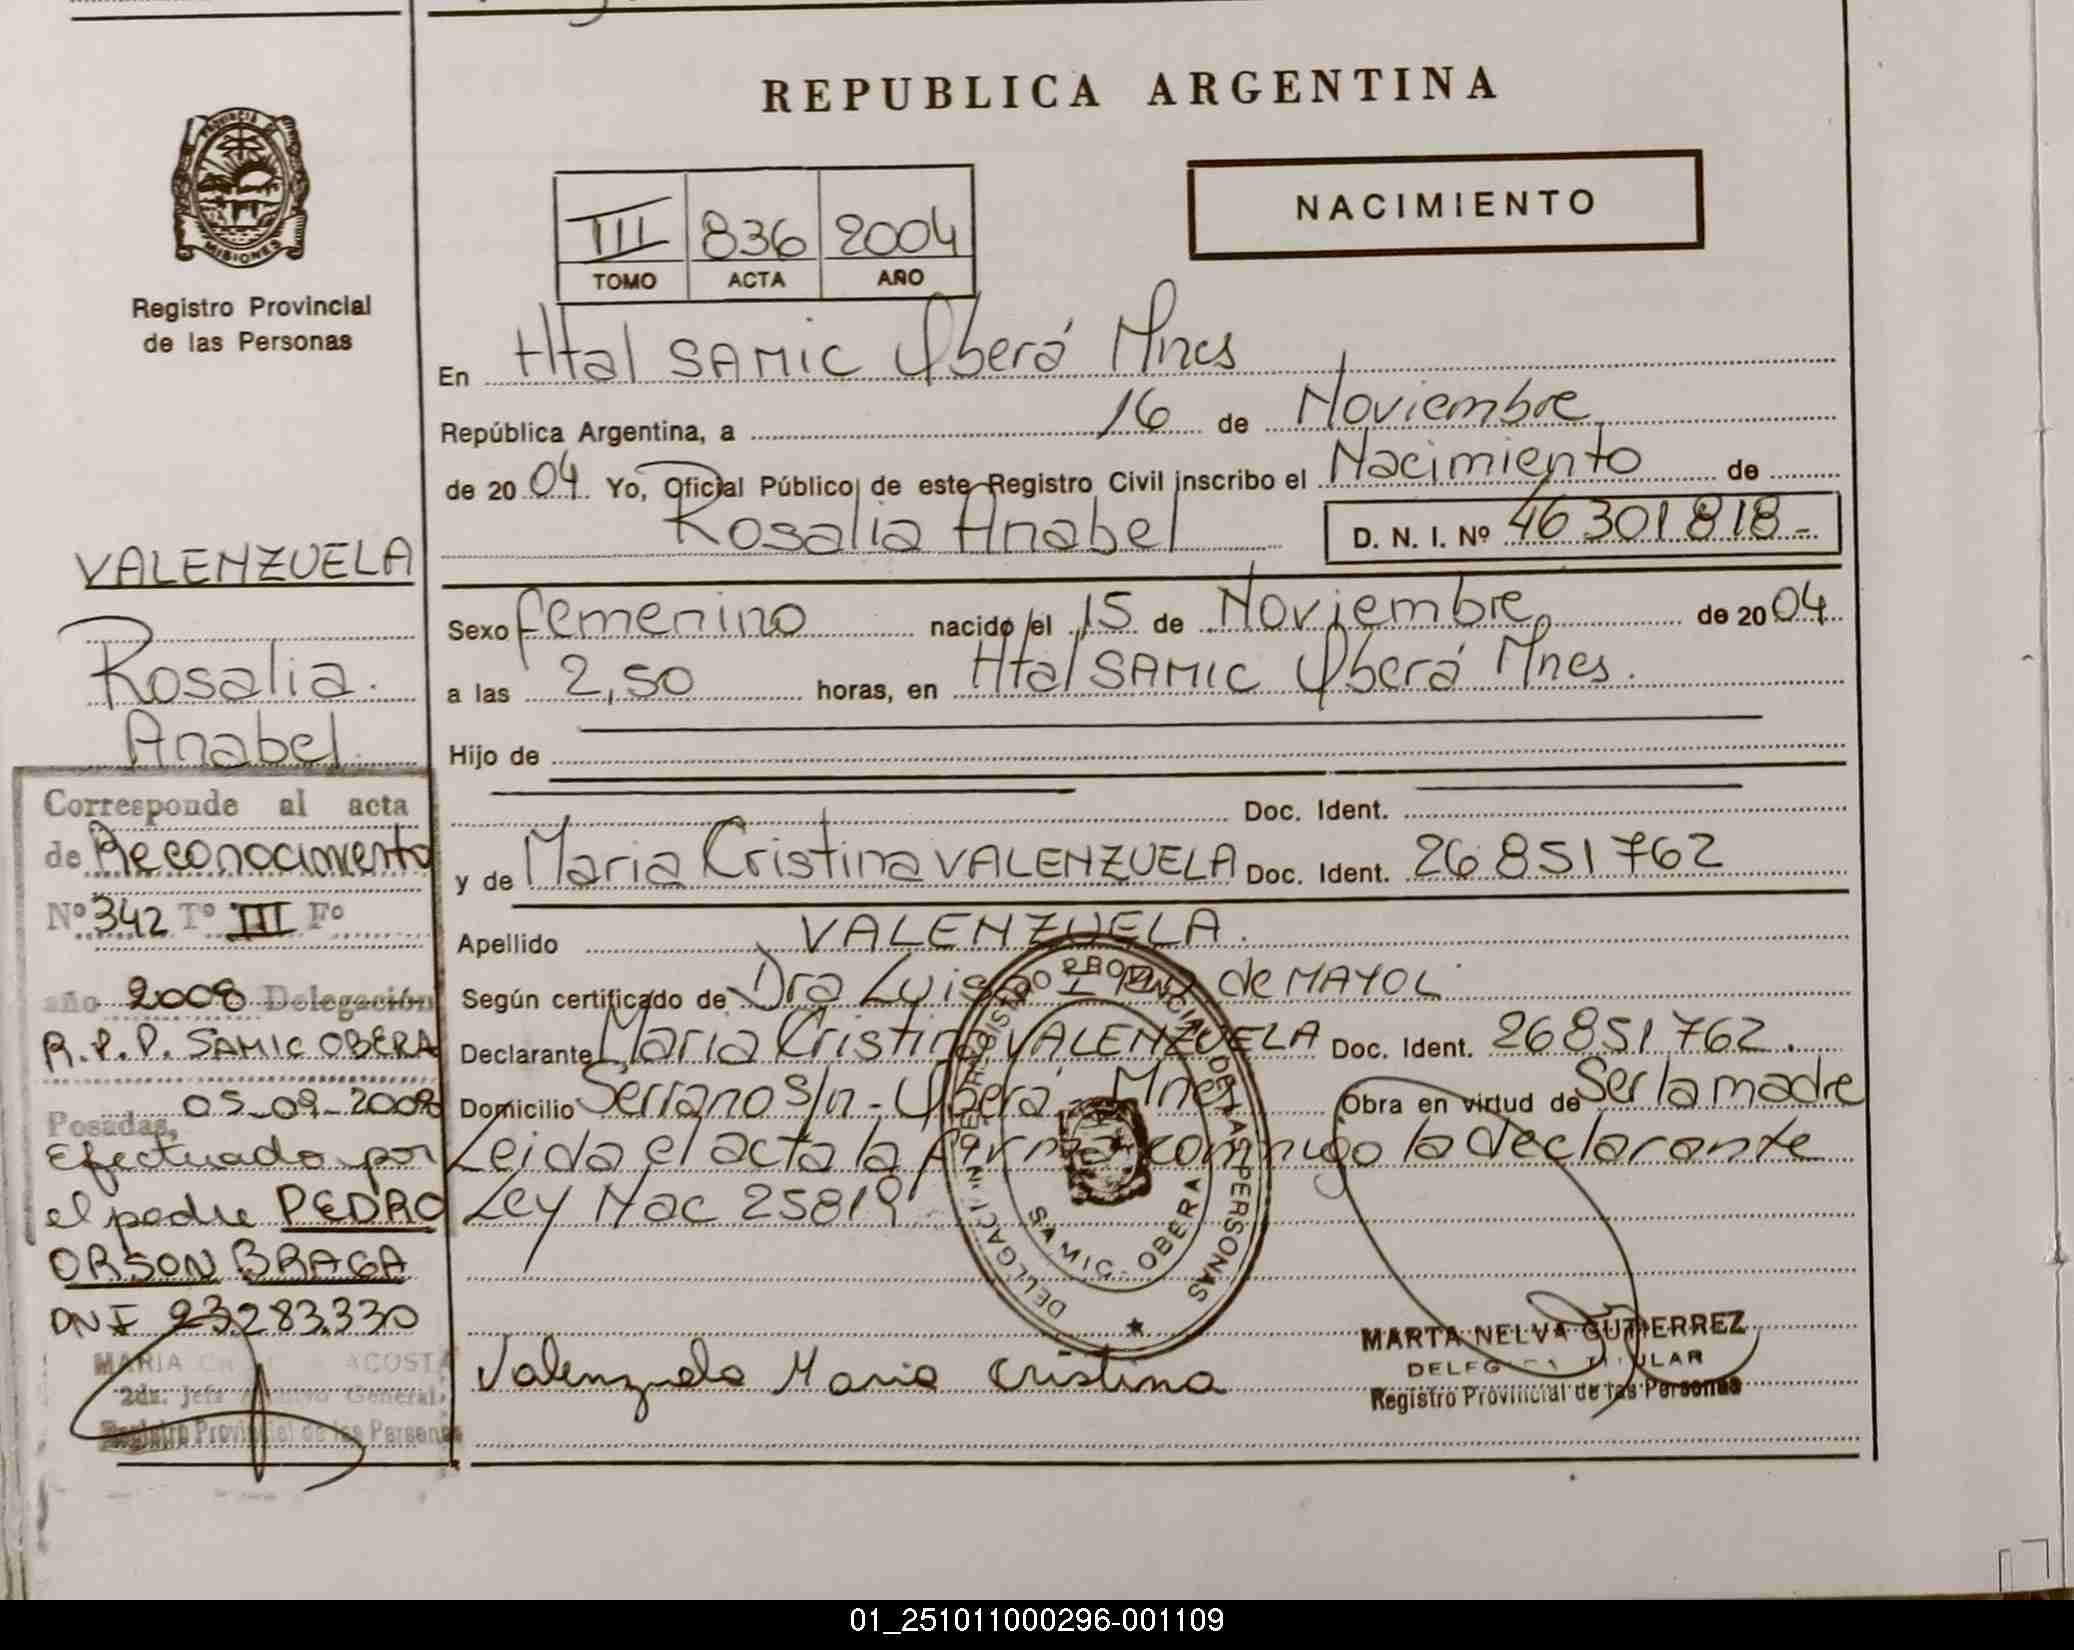 REPUBLICA ARGENTINA
PROVINCIA DE
MISIONES
Registro Provincial
de las Personas
NACIMIENTO
III 836 2004
TOMO ACTA AÑO
En Htal SAMIC Oberá Mnes
República Argentina, a 16 de Noviembre
de 2004 Yo, Oficial Público de este Registro Civil inscribo el Nacimiento de
Rosalia Anabel D. N. I. Nº 46301818-
Sexo femenino nacido el 15 de Noviembre de 2004
a las 2,50 horas, en Htal SAMIC Oberá Mnes.
Hijo de
Doc. Ident.
y de Maria Cristina VALENZUELA Doc. Ident. 26851762
Apellido VALENZUELA.
Según certificado de Dra Luisa de MAYOL
Declarante Maria Cristina VALENZUELA Doc. Ident. 26851762.
Domicilio Serrano s/n - Oberá - Mnes Obra en virtud de Ser la madre
Leida el acta la firma conmigo la declarante
Ley Nac 25819
Valenzuela Maria Cristina
MARTA NELVA GUTIERREZ
DELEGADA TITULAR
Registro Provincial de las Personas
REGISTRO PROVINCIAL DE LAS PERSONAS
SAMIC - OBERA
VALENZUELA
Rosalia.
Anabel.
Corresponde al acta
de Reconocimiento
Nº 342 Tº III Fº
año 2008 Delegación
R.P.P. SAMIC OBERA
Posadas, 05-09-2008
Efectuado por
el padre PEDRO
ORSON BRAGA
DNI 23.283.330
MARIA ACOSTA
2da. Jefa Archivo General
Registro Provincial de las Personas
01_251011000296-001109